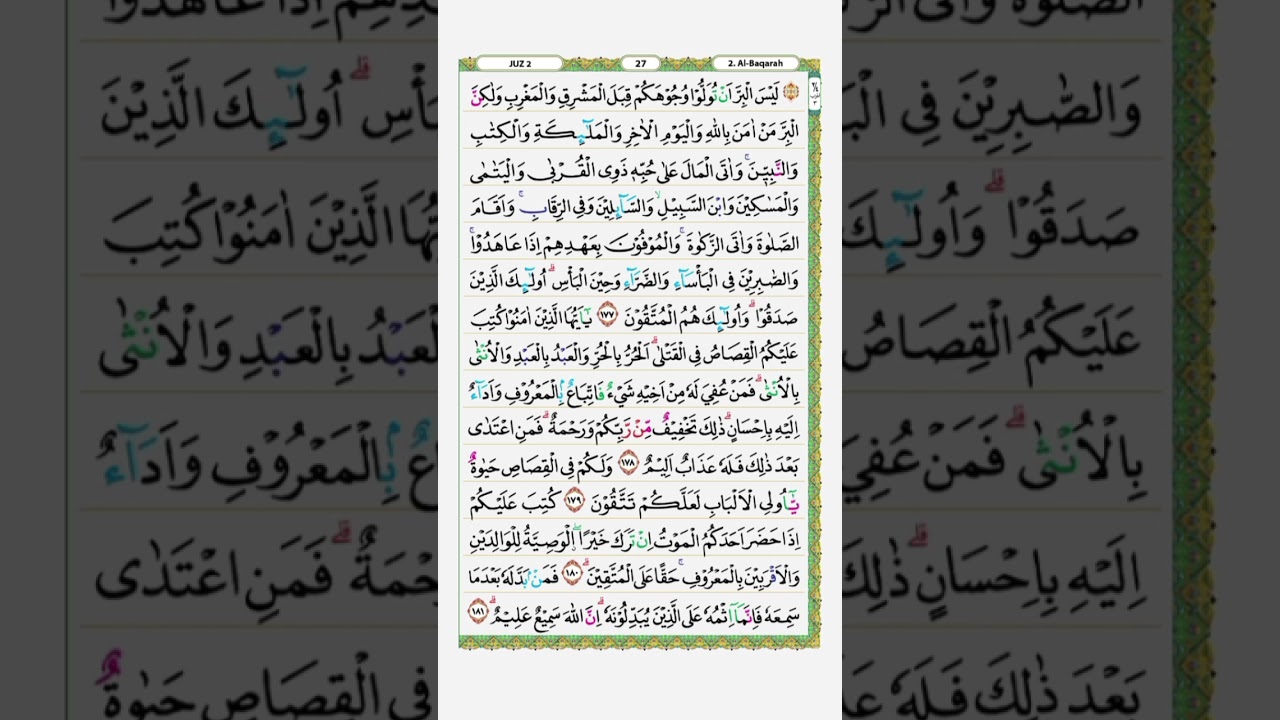 JUZ 2
27
2. Al-Baqarah
لَيْسَ الْبِرَّ اَنْ تُوَلُّوْا وُجُوْهَكُمْ قِبَلَ الْمَشْرِقِ وَالْمَغْرِبِ وَلٰكِنَّ
الْبِرَّ مَنْ اٰمَنَ بِاللّٰهِ وَالْيَوْمِ الْاٰخِرِ وَالْمَلٰۤىِٕكَةِ وَالْكِتٰبِ
وَالنَّبِيّٖنَ ۚ وَاٰتَى الْمَالَ عَلٰى حُبِّهٖ ذَوِى الْقُرْبٰى وَالْيَتٰمٰى
وَالْمَسٰكِيْنَ وَابْنَ السَّبِيْلِۙ وَالسَّاۤىِٕلِيْنَ وَفِى الرِّقَابِۚ وَاَقَامَ
الصَّلٰوةَ وَاٰتَى الزَّكٰوةَ ۚ وَالْمُوْفُوْنَ بِعَهْدِهِمْ اِذَا عَاهَدُوْا ۚ
وَالصّٰبِرِيْنَ فِى الْبَأْسَاۤءِ وَالضَّرَّاۤءِ وَحِيْنَ الْبَأْسِۗ اُولٰۤىِٕكَ الَّذِيْنَ
صَدَقُوْا ۗوَاُولٰۤىِٕكَ هُمُ الْمُتَّقُوْنَ ١٧٧ يٰٓاَيُّهَا الَّذِيْنَ اٰمَنُوْا كُتِبَ
عَلَيْكُمُ الْقِصَاصُ فِى الْقَتْلٰىۗ اَلْحُرُّ بِالْحُرِّ وَالْعَبْدُ بِالْعَبْدِ وَالْاُنْثٰى
بِالْاُنْثٰىۗ فَمَنْ عُفِيَ لَهٗ مِنْ اَخِيْهِ شَيْءٌ فَاتِّبَاعٌۢ بِالْمَعْرُوْفِ وَاَدَاۤءٌ
اِلَيْهِ بِاِحْسَانٍۗ ذٰلِكَ تَخْفِيْفٌ مِّنْ رَّبِّكُمْ وَرَحْمَةٌ ۗفَمَنِ اعْتَدٰى
بَعْدَ ذٰلِكَ فَلَهٗ عَذَابٌ اَلِيْمٌ ١٧٨ وَلَكُمْ فِى الْقِصَاصِ حَيٰوةٌ
يّٰٓاُولِى الْاَلْبَابِ لَعَلَّكُمْ تَتَّقُوْنَ ١٧٩ كُتِبَ عَلَيْكُمْ
اِذَا حَضَرَ اَحَدَكُمُ الْمَوْتُ اِنْ تَرَكَ خَيْرًا ۖ ۨالْوَصِيَّةُ لِلْوَالِدَيْنِ
وَالْاَقْرَبِيْنَ بِالْمَعْرُوْفِۚ حَقًّا عَلَى الْمُتَّقِيْنَ ۗ ١٨٠ فَمَنْۢ بَدَّلَهٗ بَعْدَمَا
سَمِعَهٗ فَاِنَّمَآ اِثْمُهٗ عَلَى الَّذِيْنَ يُبَدِّلُوْنَهٗ ۗ اِنَّ اللّٰهَ سَمِيْعٌ عَلِيْمٌ ۗ ١٨١